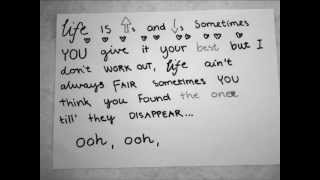 life IS ⇧s and ⇩s Sometimes
YOU give it your best but I
don't WORK OUT, life ain't
always FAIR sometimes YOU
think you found the ones
till' they DISAPPEAR...
ooh, ooh,